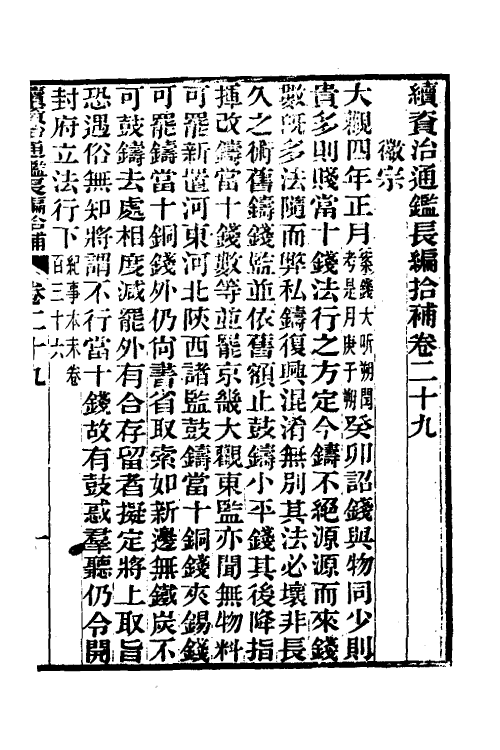 續資治通鑑長編拾補卷二十九
徽宗
大觀四年正月案錢大昕朔閏考是月庚子朔癸卯詔錢與物同少則
貴多則賤當十錢法行之方定今鑄不絕源源而來錢
數旣多法隨而弊私鑄復興混淆無別其法必壞非長
久之術舊鑄錢監並依舊額止鼓鑄小平錢其後降指
揮改鑄當十錢數等並罷京畿大觀東監亦聞無物料
可罷新置河東河北陝西諸監鼓鑄當十銅錢夾錫錢
可罷鑄當十銅錢外仍尙書省取索如新邊無鐵炭不
可鼓鑄去處相度減罷外有合存留者擬定將上取旨
恐遇俗無知將謂不行當十錢故有鼓惑羣聽仍令開
封府立法行下紀事本末卷百三十六
續資治通鑑長編拾補 卷二十九 一